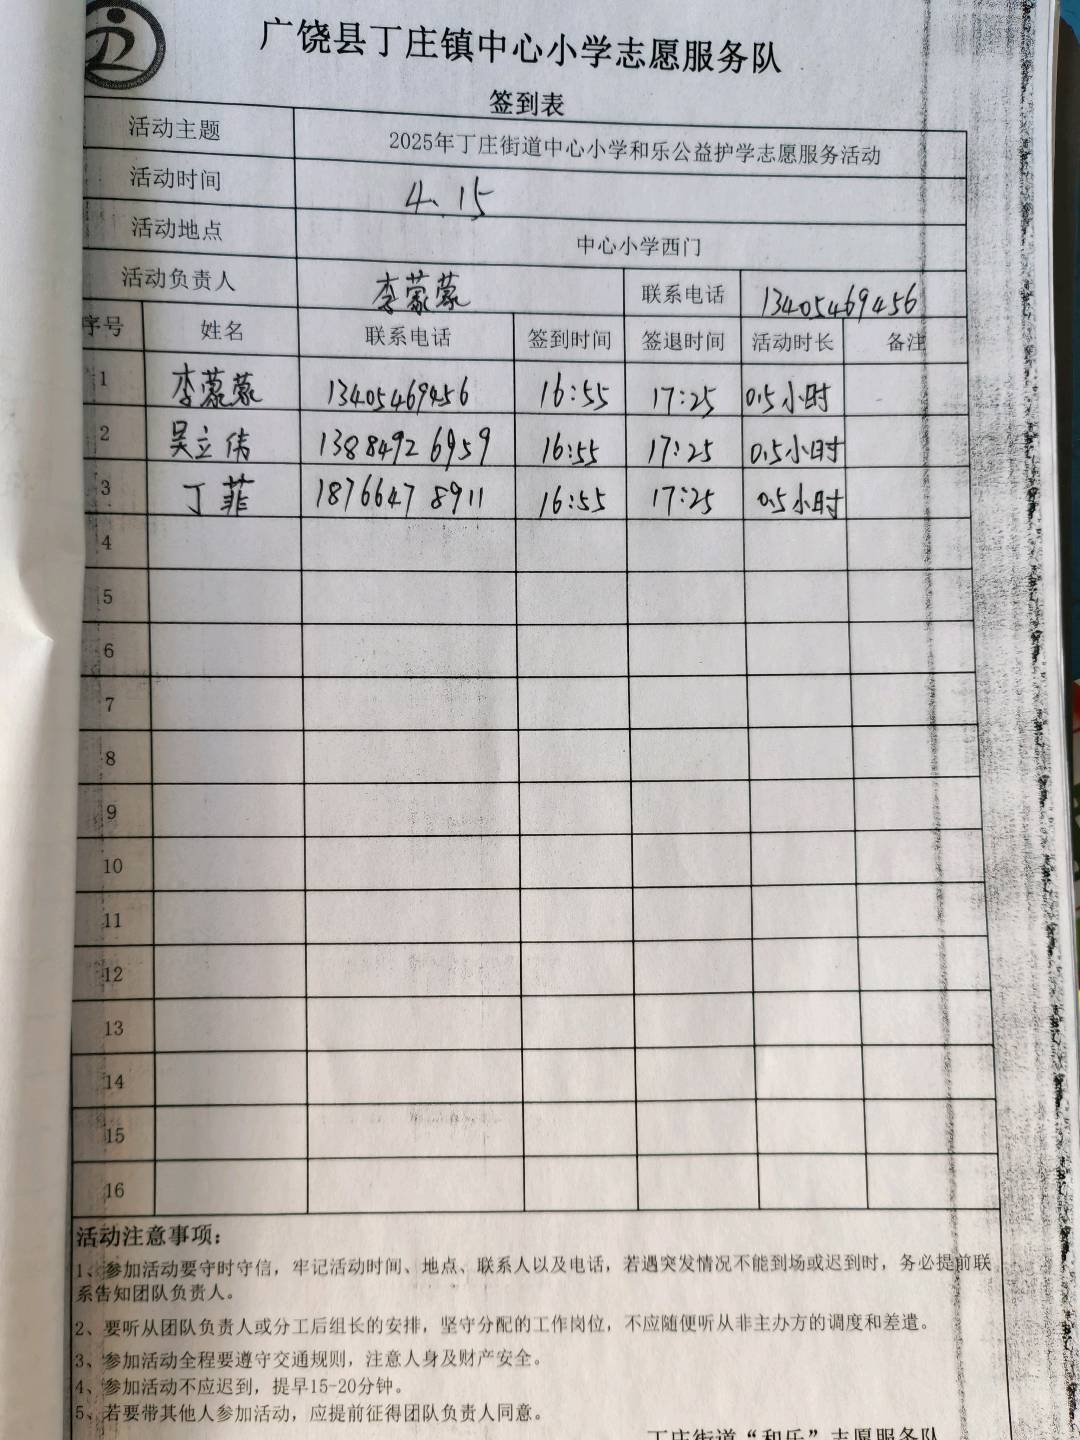 广饶县丁庄镇中心小学志愿服务队
签到表
活动主题 2025年丁庄街道中心小学和乐公益护学志愿服务活动
活动时间 4.15
活动地点 中心小学西门
活动负责人 李蒙蒙 联系电话 13405469456
序号 姓名 联系电话 签到时间 签退时间 活动时长 备注
1 李蒙蒙 13405469456 16:55 17:25 0.5小时
2 吴立伟 13884926959 16:55 17:25 0.5小时
3 丁菲 18766478911 16:55 17:25 0.5小时
4
5
6
7
8
9
10
11
12
13
14
15
16
活动注意事项：
1、参加活动要守时守信，牢记活动时间、地点、联系人以及电话，若遇突发情况不能到场或迟到时，务必提前联
系告知团队负责人。
2、要听从团队负责人或分工后组长的安排，坚守分配的工作岗位，不应随便听从非主办方的调度和差遣。
3、参加活动全程要遵守交通规则，注意人身及财产安全。
4、参加活动不应迟到，提早15-20分钟。
5、若要带其他人参加活动，应提前征得团队负责人同意。
丁庄街道“和乐”志愿服务队